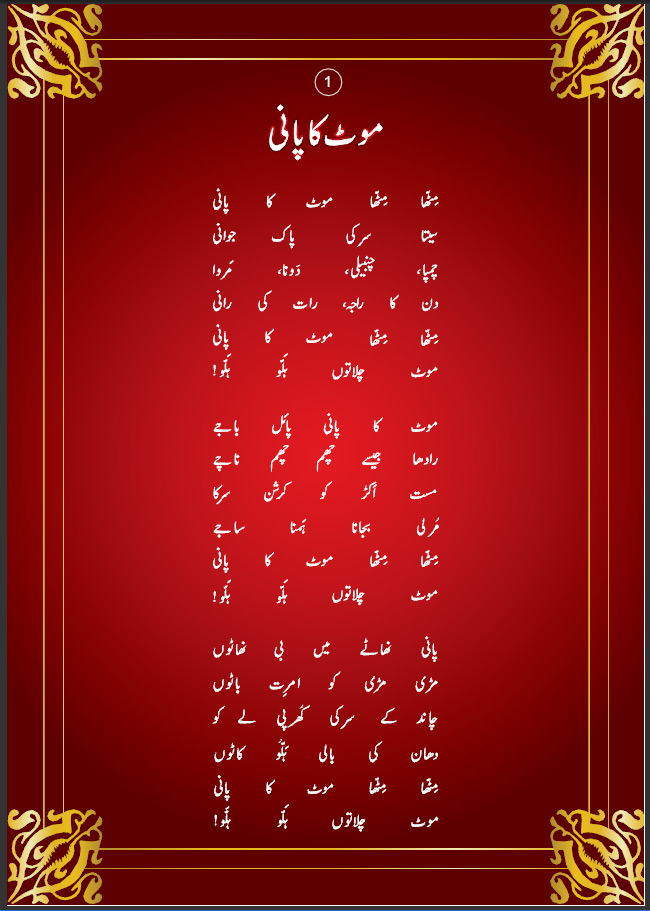 1
موٹ کا پانی
مِٹھّا مِٹھّا موٹ کا پانی
سیتا سرکی پاک جوانی
چمپا، چنبیلی، دَونا، مَروا
دن کا راجہ، رات کی رانی
مِٹھّا مِٹھّا موٹ کا پانی
موٹ چلاتوں ہَلّو ہَلّو!
موٹ کا پانی پائل باجے
رادھا جیسے چھم چھم ناچے
مست اَکڑ کو کرشن سرکا
مُرلی بجانا ہَمنا ساجے
مِٹھّا مِٹھّا موٹ کا پانی
موٹ چلاتوں ہَلّو ہَلّو!
پانی نھاٹے میں بی نھاٹوں
مڑی مڑی کو امرِت باٹوں
چاند کے سرکی کُھرپی لے کو
دھان کی بالی ہَلّو کاٹوں
مِٹھّا مِٹھّا موٹ کا پانی
موٹ چلاتوں ہَلّو ہَلّو!